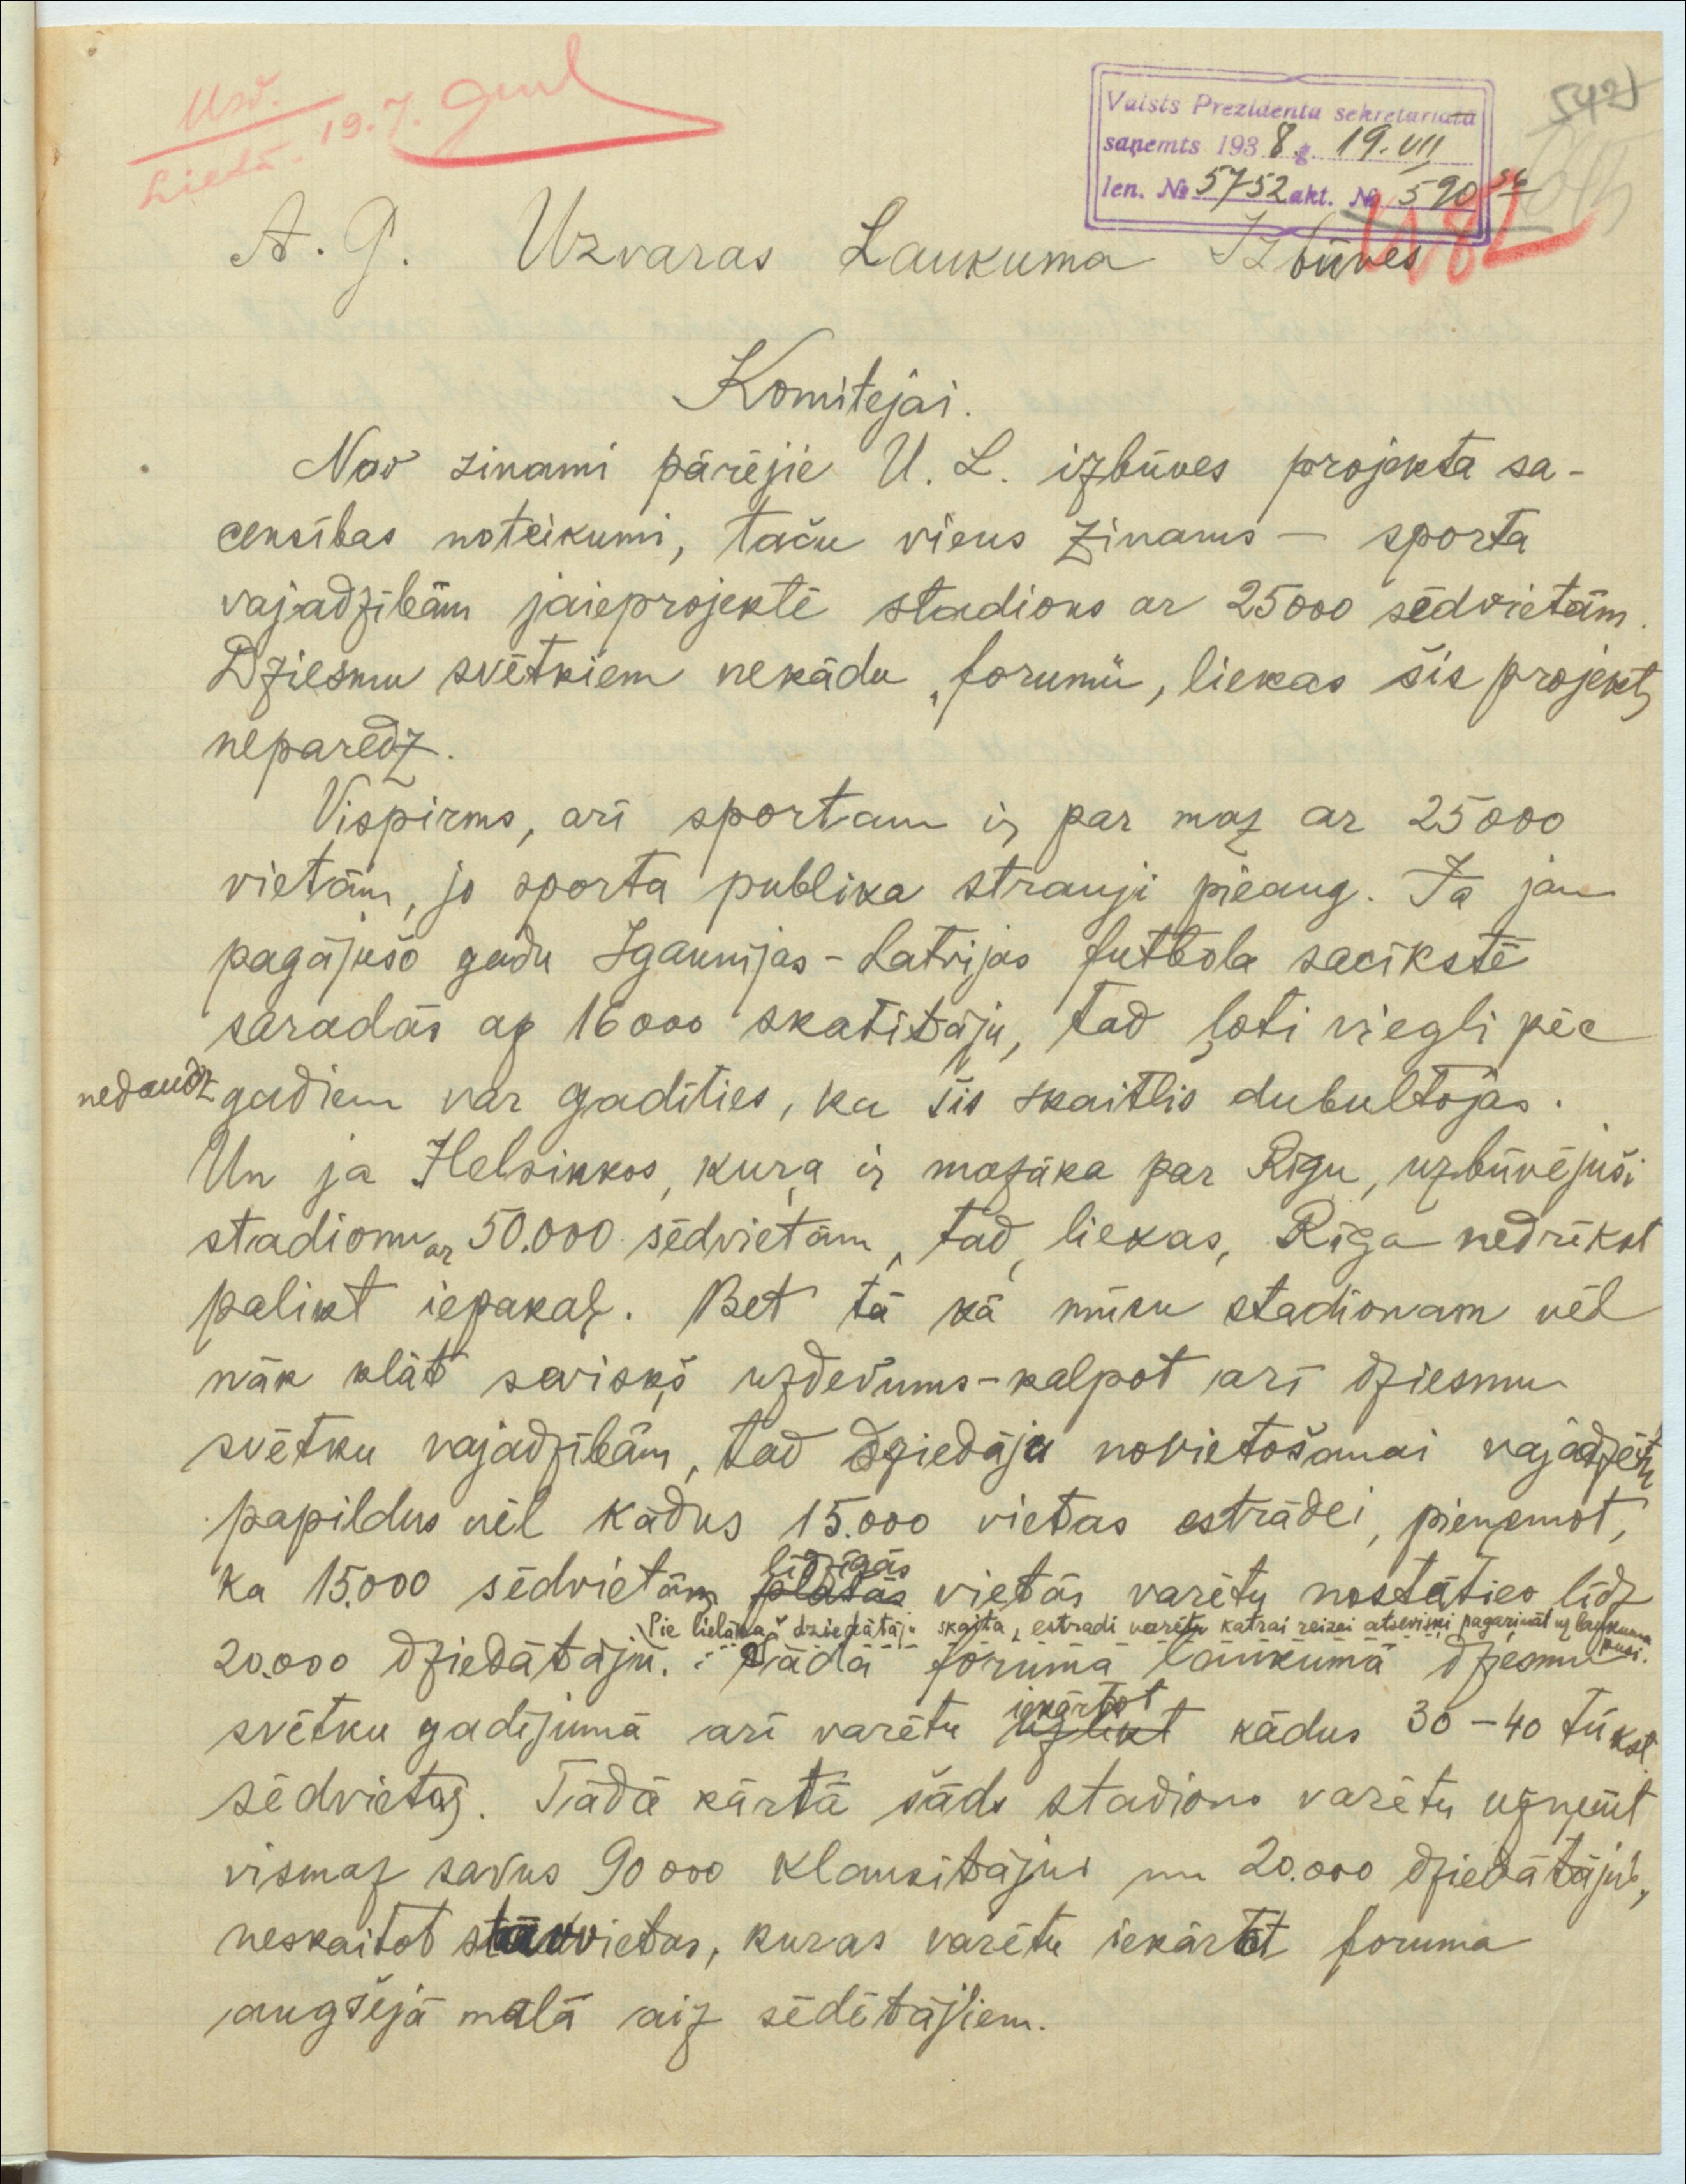 19.7.
Lietā.
5425
Valsts Prezidenta sekretariatā
saņemts 1938 g. 19.VII
Ien. № 5752 akt. № 590
A. G. Uzvaras Laukuma Izbūves
Komitejai.
Nav zinami pārējie U. L. izbūves projekta sa-
censības noteikumi, taču viens zinams — sporta
vajadzībām jāieprojektē stadions ar 25000 sēdvietām.
Dziesmu svētkiem nekādu „forumu", liekas šis projekts
neparedz.
Vispirms, arī sportam ir par maz ar 25000
vietām, jo sporta publika strauji pieaug. Ja jau
pagājušo gadu Igaunijas-Latvijas futbola sacīkstē
saradās ap 16000 skatītāju, tad ļoti viegli pēc
nedaudz gadiem var gadīties, ka šis skaitlis dubultojas.
Un ja Helsinkos, kuŗa ir mazāka par Rīgu, uzbūvējuši
stadionu ar 50.000 sēdvietām, tad, liekas, Rīga nedrīkst
palikt iepakaļ. Bet tā kā mūsu stadionam vēl
nāk klāt sevišķs uzdevums-kalpot arī dziesmu
svētku vajadzībām, tad dziedāju novietošanai vajadzētu
papildus vēl kādus 15.000 vietas estrādei, pieņemot,
līdzīgās
ka 15.000 sēdvietām platās vietās varētu nostāties līdz
Pie lielāka dziedātāju skaita, estradi varētu katrai reizei atsevišķi pagarināt uz laukuma pusi.
20.000 dziedātāju. Šādā foruma laukumā dziesmu
iekārtot
svētku gadījumā arī varētu uzlikt kādus 30-40 tūkst.
sēdvietas. Tādā kārtā šāds stadions varētu uzņemt
vismaz savus 90000 klausītājus un 20.000 dziedātājus,
neskaitot stāvvietas, kuras varētu iekārtot foruma
augšējā malā aiz sēdētājiem.